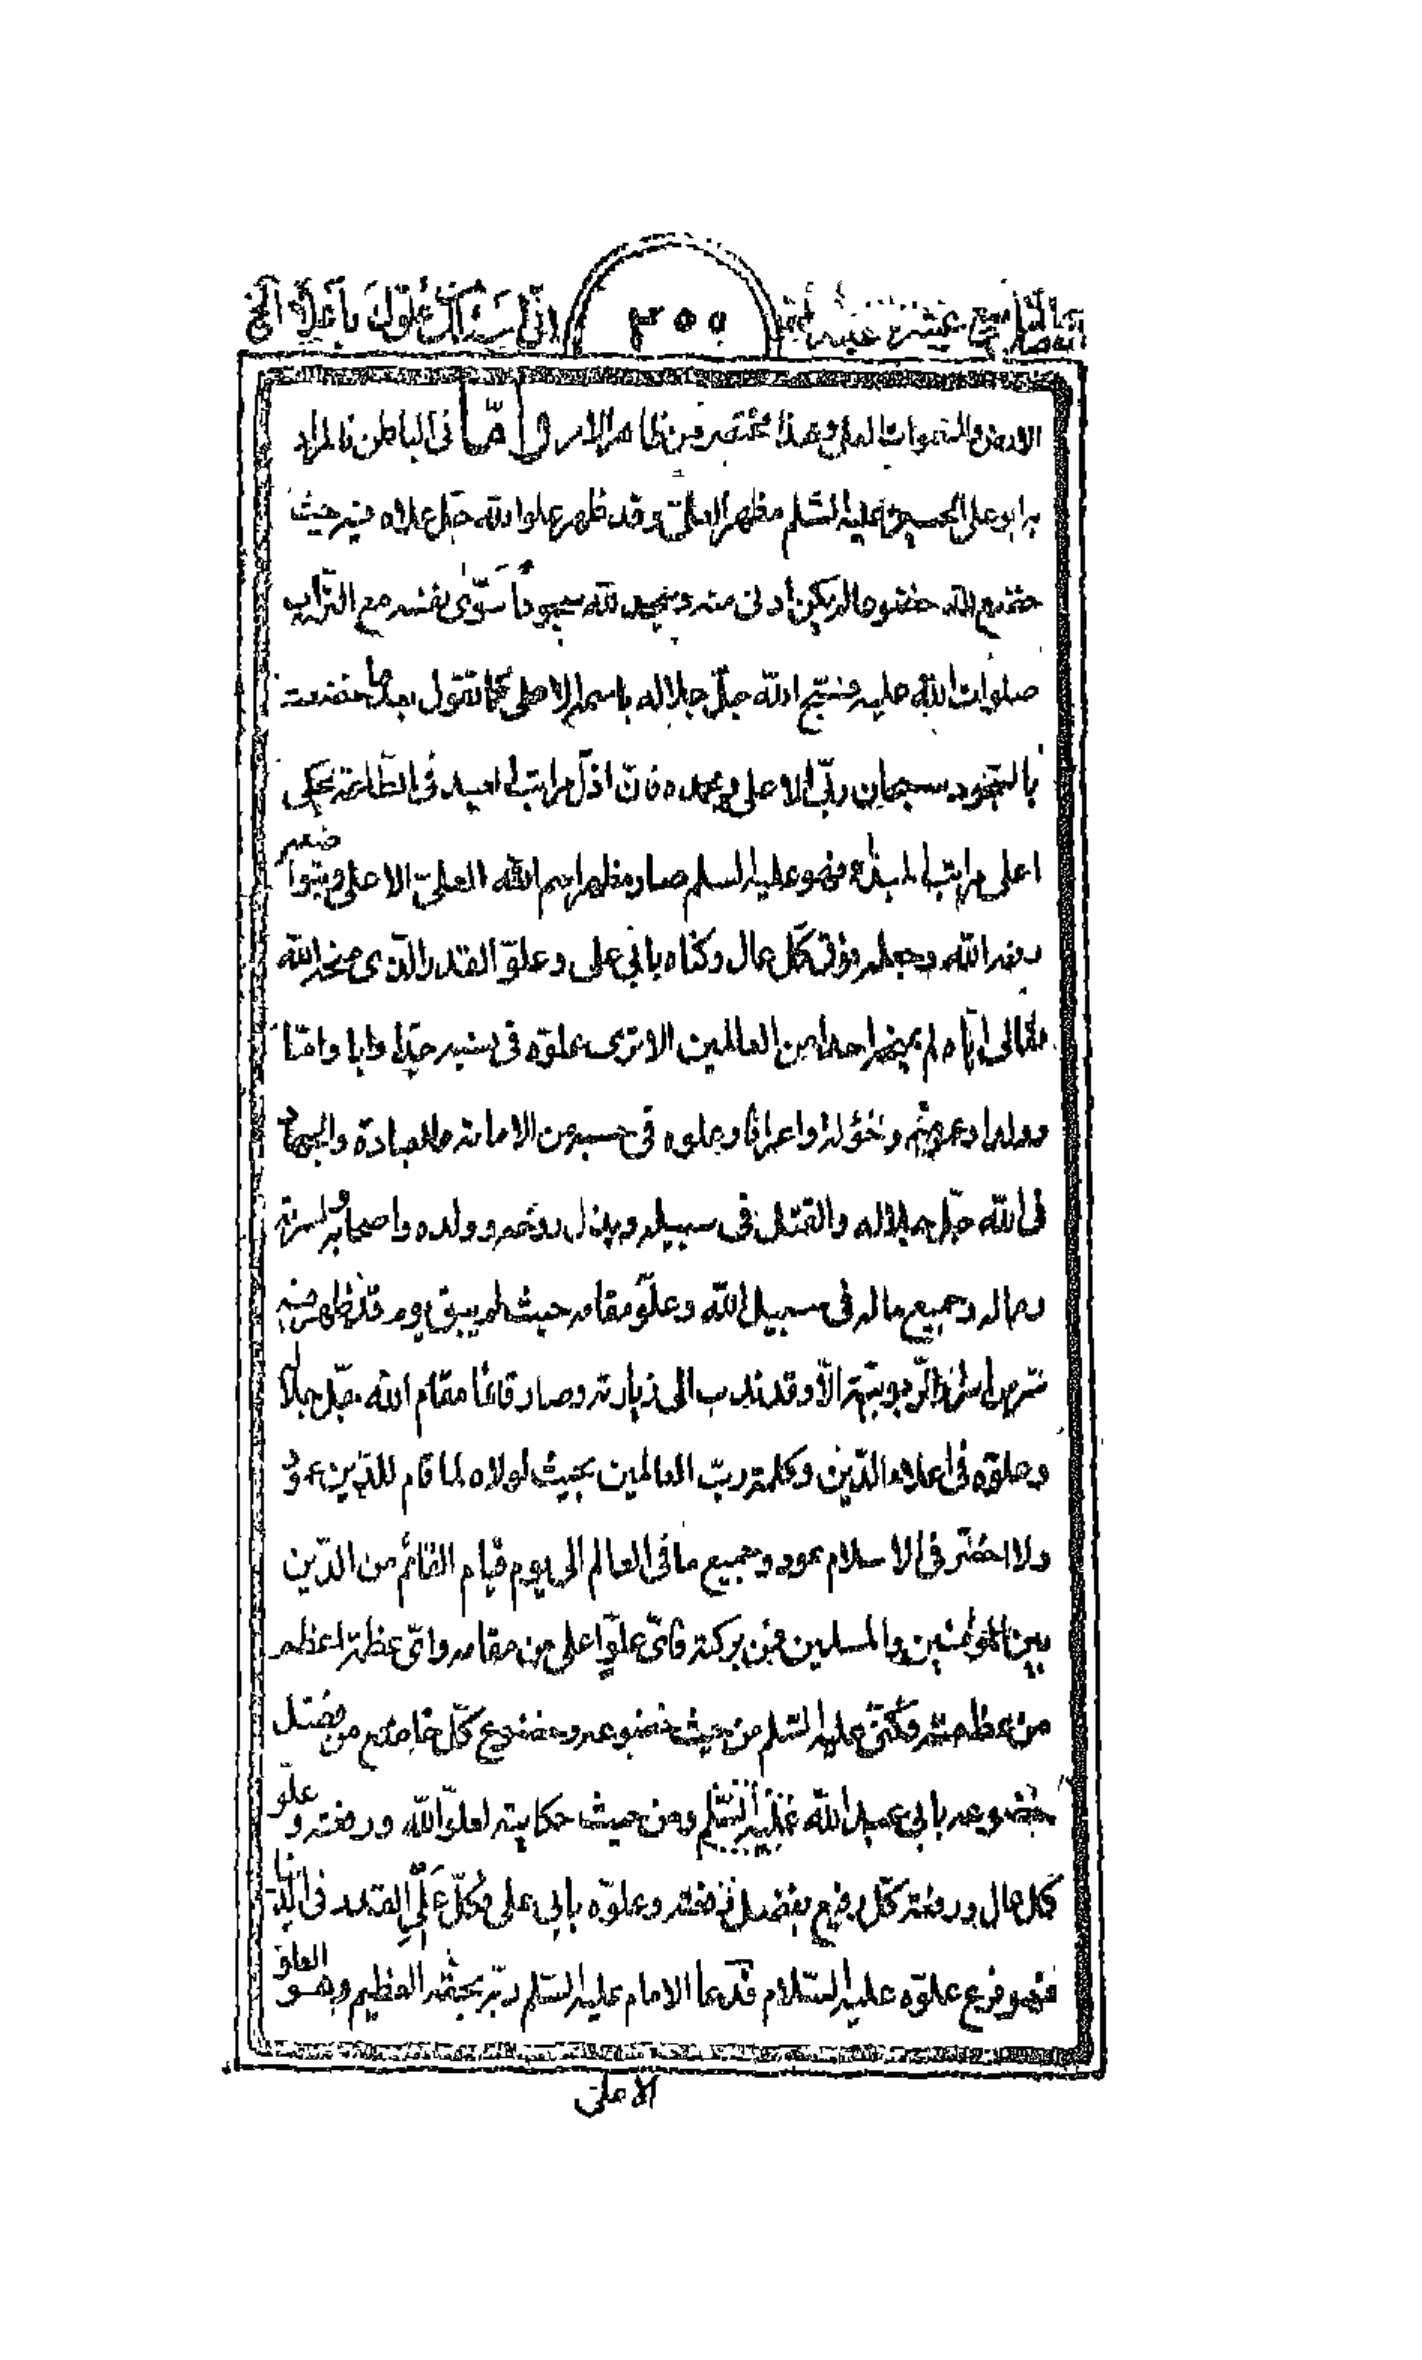 ٣٥٥
انّى اسئلك من علوّك باعلاه الخ
الارض والسموات العلى وهذا مختصر من ظاهر الامر واما فى الباطن فالمراد
به ابو على الحسين عليه السّلم مظهر العلى وقد ظهر علو الله جلّ علاه فيه حيث
خضع لله خضوعا لم يكن ادنى منه وسجد لله سجودًا سوّى نفسه مع التراب
صلوات الله عليه فسبّح الله جلّ جلاله باسمه الاعلى كما تقول بعد ما خضعت
بالسّجود سبحان ربّى الاعلى وبحمده فان اذلّ مراتب العبيد فى الطاعة يحكى
اعلى مراتب المبدء فهو عليه السلم صار مظهر اسم الله العلىّ الاعلى وبتواضعه
رفعه الله وجعله فوق كلّ عال وكناه بابى على وعلوّ القدر الّذى منحه الله
تعالى ايّاه لم يمنحه احدا من العالمين الا ترى علوّه فى نسبه جدّا وابا وامّا
وولدا وعمومة وخؤلة واعراقا وعلوه فى حسبه من الامامة والعبادة والجهاد
فى الله جلّ جلاله والقتل فى سبيله وبذل روحه وولده واصحابه واسرته
وماله وجميع ماله فى سبيل الله وعلوّ مقامه حيث لم يبق يوم قد ظهر فيه
سرّ من اسرار الربوبيّة الّا وقد ندب الى زيارته وصار قائمًا مقام الله جلّ جلاله
وعلوّه فى اعلاء الدّين وكلمة ربّ العالمين بحيث لولاه لما قام للدّين عمود
ولا اخضر فى الاسلام عود وجميع ما فى العالم الى يوم قيام القائم من الدّين
بين المؤمنين والمسلمين فمن بركته فاىّ علوّ اعلى من مقامه واىّ عظمة اعظم
من عظمته وكنّى عليه السّلم من حيث خضوعه وخضوع كلّ خاضع من فضل
خضوعه بابى عبد الله عليه السّلم ومن حيث حكايته لعلوّ الله ورفعته وعلوّ
كل عال ورفعة كلّ رفيع بفضل رفعته وعلوّه بابى على فكلّ علىّ القدر فى الدّنيا
فهو فرع علوّه عليه السّلام فدعا الامام عليه السّلم ربّه بحقّه العظيم وهو العلوّ
الاعلى